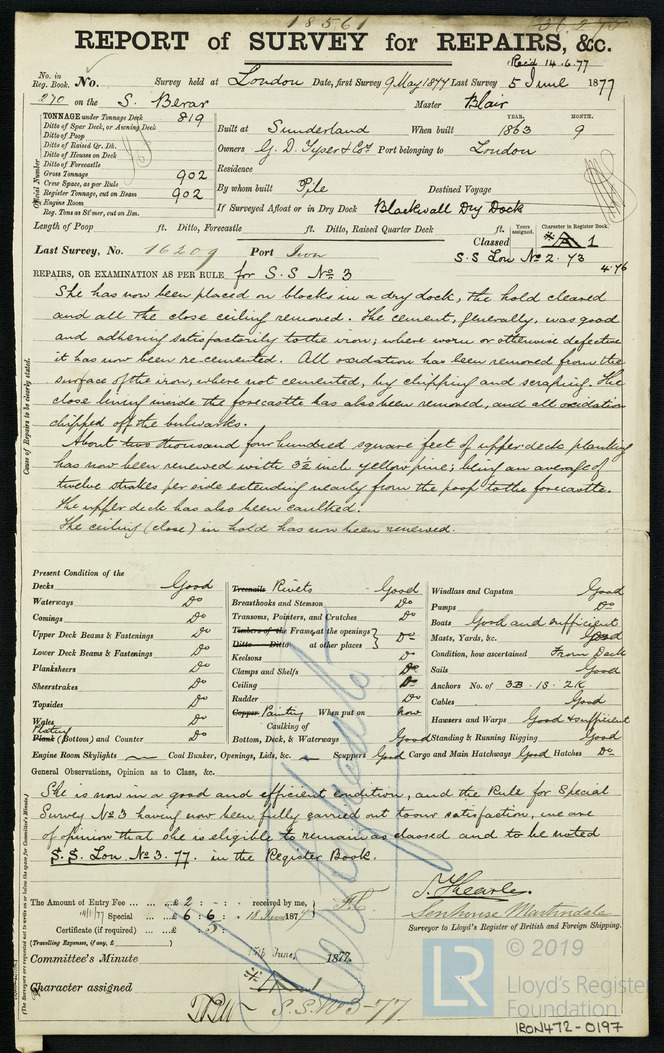 18561
REPORT of SURVEY for REPAIRS, &c.
Rec'd 14.6.77
No. in Reg. Book. No. Survey held at London Date, first Survey 9 May 1877 Last Survey 5 June 1877
270 on the S. Berar Master Blair
TONNAGE under Tonnage Deck 819
Ditto of Spar Deck, or Awning Deck
Ditto of Poop
Ditto of Raised Qr. Dk.
Ditto of Houses on Deck
Ditto of Forecastle
Gross Tonnage 902
Crew Space, as per Rule
Register Tonnage, cut on Beam 902
Engine Room
Reg. Tons as St'mer, cut on Bm.
Official Number
YEAR. MONTH.
Built at Sunderland When built 1863 9
Owners G. D. Tyser & Co. Port belonging to London
Residence
By whom built Pile Destined Voyage
If Surveyed Afloat or in Dry Dock Blackwall Dry Dock
Length of Poop ft. Ditto, Forecastle ft. Ditto, Raised Quarter Deck ft.
Years assigned. Character in Register Book.
Classed A 1
Last Survey, No. 16209 Port Iron S.S Lon No 2. 73
4.76
REPAIRS, OR EXAMINATION AS PER RULE for S.S No 3
She has now been placed on blocks in a dry dock, the hold cleared
and all the close ceiling removed. The cement, generally, was good
and adhering satisfactorily to the iron; where worn or otherwise defective
it has now been re-cemented. All oxidation has been removed from the
surface of the iron, where not cemented, by chipping and scraping. The
close lining inside the forecastle has also been removed, and all oxidation
chipped off the bulwarks.
About two thousand four hundred square feet of upper deck planking
has now been renewed with 3½ inch yellow pine; being an average of
twelve strakes per side extending nearly from the poop to the forecastle.
The upper deck has also been caulked.
The ceiling (close) in hold has now been renewed.
Cases of Repairs to be clearly stated.
Present Condition of the
Decks Good
Waterways Do
Comings Do
Upper Deck Beams & Fastenings Do
Lower Deck Beams & Fastenings Do
Planksheers Do
Sheerstrakes Do
Topsides Do
Wales Do
Plating
Plank (Bottom) and Counter Do
Treenails Rivets Good
Breasthooks and Stemson Do
Transoms, Pointers, and Crutches Do
Timbers of the Frame, at the openings Do
Ditto Ditto at other places
Keelsons Do
Clamps and Shelfs Do
Ceiling Do
Rudder Do
Copper Painting When put on Now
Caulking of
Bottom, Deck, & Waterways Good
Windlass and Capstan Good
Pumps Do
Boats Good and sufficient
Masts, Yards, &c. Good
Condition, how ascertained From Deck
Sails Good
Anchors No. of 3B. 1S. 2K
Cables Good
Hawsers and Warps Good & sufficient
Standing & Running Rigging Good
Engine Room Skylights Coal Bunker, Openings, Lids, &c. Scuppers Good Cargo and Main Hatchways Good Hatches Do
General Observations, Opinion as to Class, &c.
She is now in a good and efficient condition, and the Rule for Special
Survey No 3 having now been fully carried out to our satisfaction, we are
of opinion that she is eligible to remain as classed and to be noted
S.S. Lon No 3. 77. in the Register Book.
The Amount of Entry Fee £ 2 : - : received by me,
Special £ 6 : 6 : 18 June 1877
Certificate (if required) : 5 :
(Travelling Expenses, if any, £ )
Senhouse Martindale
Surveyor to Lloyd's Register of British and Foreign Shipping.
Committee's Minute 15th June, 1877.
Character assigned A 1
S.S. No 3-77
© 2019
LR
Lloyd's Register
Foundation
IRON472-0197